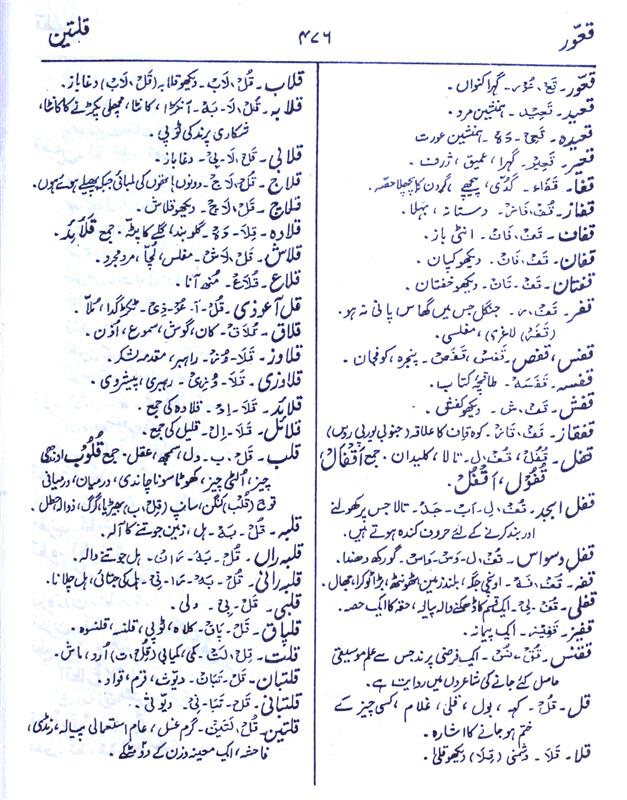 قعوّر
۴۷۶
قلتین
قعوّر۔ قَعْ۔ عَوْر۔ گہرا کنواں۔
قعید۔ قَعِیْد۔ ہمنشین مرد۔
قعیدہ۔ قَعِیْ۔ دَہْ۔ ہمنشین عورت
قعیر۔ قَعِیْر۔ گہرا، عمیق، ژرف۔
قفا۔ قَفَاء۔ گُدّی، پیچھے، گردن کا پچھلا حصّہ۔
قفاز۔ قُفْ، فَاز۔ دستانہ، بہلا۔
قفاف۔ قَفْ، فَاف۔ انٹی باز۔
قفان۔ قَفْ، فَان۔ دیکھو کپان۔
قفتان۔ قَفْ۔ تَان۔ دیکھو خفتان۔
قفر۔ قَفْ۔ ر۔ جنگل جس میں گھاس پانی نہ ہو۔
(قَفَر) لاغری، مفلسی۔
قفس، قفص۔ قَفَسْ، قَفَصْ۔ پنجرہ، کوفچان۔
قفسہ۔ قَفَسَہ۔ طاقچۂ کتاب۔
قفش۔ قَفْ۔ ش۔ دیکھو کفش۔
قفقاز۔ قَفْ۔ قَاز۔ کوہ قاف کا علاقہ (جنوبی یورپی روس)
قفل۔ قُفْل، قُفْ۔ ل۔ تالا، کلیدان۔ جمع اَقْفَال،
قُفُوْل، اَقْفُل۔
قفل ابجد۔ قُفْ۔ لِ۔ اَبْ۔ جَد۔ تالا جس پر کھولنے
اور بند کرنے کے لئے حروف کندہ ہوتے ہیں۔
قفل وسواس۔ قُفْ۔ لِ۔ وَسْ۔ وَاس۔ گورکھ دھندا۔
قفہ۔ قُفْ، فَہ۔ اونچی جگہ، بلند زمین، ٹھونٹھ، بڑا ٹوکرا، جھال۔
قفلی۔ قُفْ۔ لِی۔ ایک قسم کا ڈھکنے والا پیالہ، حقہ کا ایک حصہ۔
قفیز۔ قَفِیْز۔ ایک پیمانہ۔
ققنس۔ قُقْ، نُسْ۔ ایک فرضی پرند جس سے علم موسیقی
حاصل کئے جانے کی شاعروں میں روایت ہے۔
قل۔ قُلْ۔ کہہ، بول، قلی، غلام، کسی چیز کے
ختم ہو جانے کا اشارہ۔
قلا۔ قَلَا۔ دشمنی (قِلَا) دیکھو قلی۔
قلاب۔ قُلْ، لَاب۔ دیکھو قلابہ (قَلْ، لَاب) دغاباز۔
قلابہ۔ قُلْ، لَا۔ بَہ۔ آنکڑا، کانٹا، مچھلی پکڑنے کا کانٹا،
شکاری پرند کی ٹوپی۔
قلابی۔ قَلْ، لَا۔ بی۔ دغاباز۔
قلاج۔ قُلْ، لَاج۔ دونوں ہاتھوں کی لمبائی جبکہ پھیلے ہوئے ہوں۔
قلاچ۔ قَلْ، لَاچ۔ دیکھو قلاش۔
قلادہ۔ قِلَا۔ دَہ۔ گلوبند، گلے کا پٹہ۔ جمع قَلَائِد۔
قلاش۔ قَلْ، لَاش۔ مفلس، لُچّا، مرد مجرد۔
قلاع۔ قُلَاع۔ منہ آنا۔
قل آعوذی۔ قُلْ۔ آ۔ عُوْ۔ ذِی۔ ٹکڑ گدا، مُلّا۔
قلاق۔ قُلَاق۔ کان، گوش، سموع، اُذن۔
قلاوز۔ قَلَا۔ وُز۔ راہبر، مقدمہ لشکر۔
قلاوزی۔ قَلَا۔ وُزِی۔ رہبری، پیشروی۔
قلائد۔ قَلَا۔ اِد۔ قلادہ کی جمع۔
قلائل۔ قَلَا۔ اِل۔ قلیل کی جمع۔
قلب۔ قَلْ۔ ب۔ دل، سمجھ، عقل۔ جمع قُلُوْب اوندھی
چیز، الٹی چیز، کھوٹا سونا چاندی، درمیان، درمیانی
فوج (قُلب) کنگن، سانپ (قِلْ، ب) بھیڑیا، گرگ، ذوالرحطل۔
قلبہ۔ قُلْ۔ بَہ۔ ہل، زمین جوتنے کا آلہ۔
قلبہ راں۔ قُلْ۔ بَہ۔ رَاں۔ ہل جوتنے والا۔
قلبہ رانی۔ قُلْ۔ بَہ۔ رَا۔ نِی۔ ہل کی جتائی، ہل چلانا۔
قلبی۔ قَلْ۔ بِی۔ دلی۔
قلپاق۔ قَلْ۔ پَاق۔ کلاہ، ٹوپی، قلنہ، قلنسوہ۔
قلت۔ قِلْ، لَت۔ کمی، کمیابی (قِلْ، ت) اُرد، ماش۔
قلتبان۔ قَلْ۔ تَبَان۔ دیوث، قرم، قواد۔
قلتبانی۔ قَلْ۔ تَبَا۔ نِی۔ دیوثی۔
قلتین۔ قُلْ، لَتَیْن۔ گرم غسل، عام استعمالی پیالہ، رنڈی،
فاحشہ، ایک معینہ وزن کے دو مٹکے۔